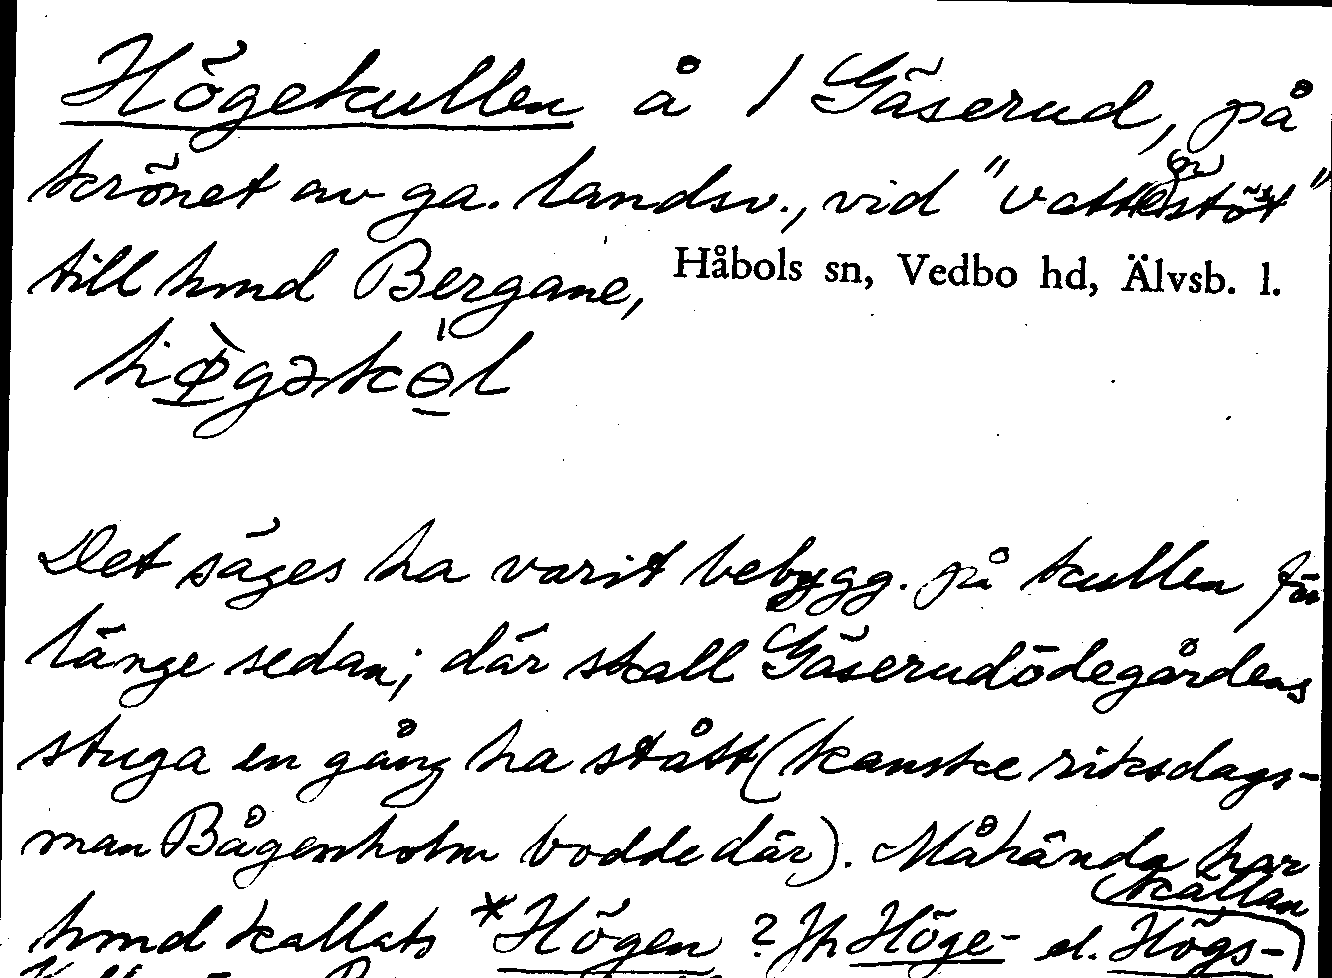 Högekullen å 1 Gäserud, på
krönet av ga. landsv., vid "vattenstöt"
till hmd Bergane, Håbols sn, Vedbo hd, Älvsb. l.
Det säges ha varit bebygg. på kullen för
länge sedan; där skall Gäserudödegårdens
stuga en gång ha stått (kanske riksdags-
man Bågenholm bodde där). Måhända har
källan
hmd kallats *Högen ? Jfr Höge- el. Högs-